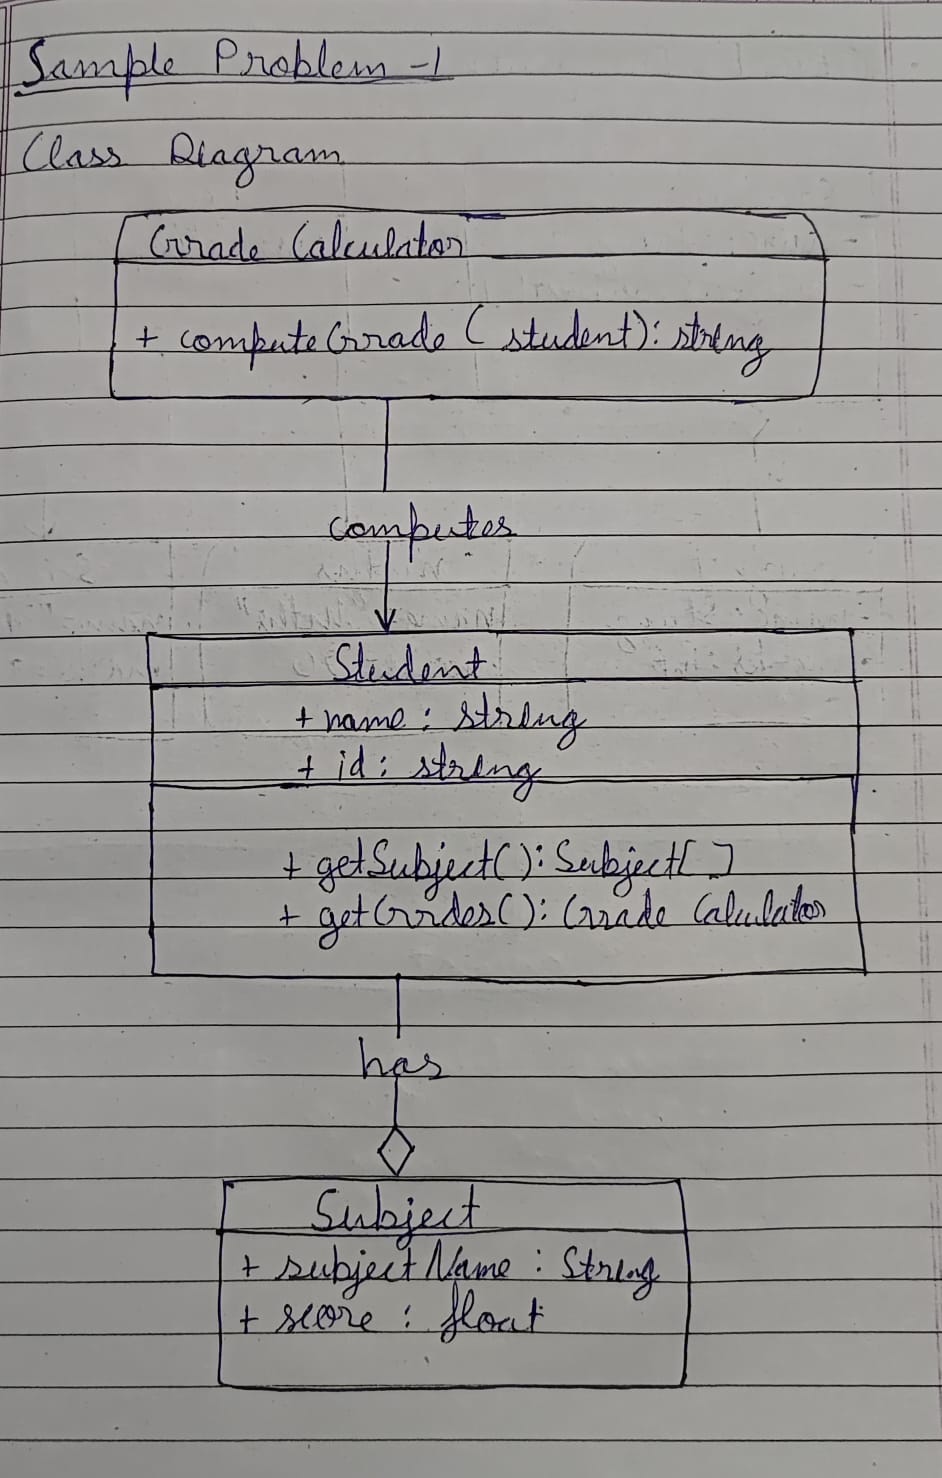 Sample Problem -1
Class Diagram
Grade Calculator
+ computeGrade (student): string
computes
Student
+ name: string
+ id: string
+ getSubject(): Subject[]
+ getGrdes(): Grade Calculator
has
Subject
+ subjectName: String
+ score: float